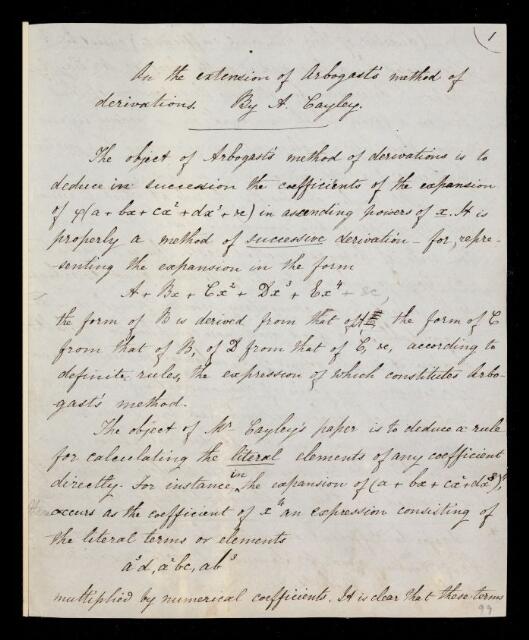 1
On the extension of Arbogast's method of
derivations. By A. Cayley.
The object of Arbogast's method of derivations is to
deduce in succession the coefficients of the expansion
of φ(a + bx + cx² + dx³ + &c) in ascending powers of x. It is
properly a method of successive derivation – for, repre-
senting the expansion in the form
A + Bx + Cx² + Dx³ + Ex⁴ + &c,
the form of B is derived from that of A the form of C
from that of B, of D from that of C, &c, according to
definite rules, the expression of which constitutes Arbo-
gast's method.
The object of Mr Cayley's paper is to deduce a rule
for calculating the literal elements of any coefficient
directly. For instance in the expansion of (a + bx + cx² + dx³)⁴,
occurs as the coefficient of x³ an expression consisting of
the literal terms or elements
a³d, a²bc, ab³
multiplied by numerical coefficients. It is clear that these terms
99